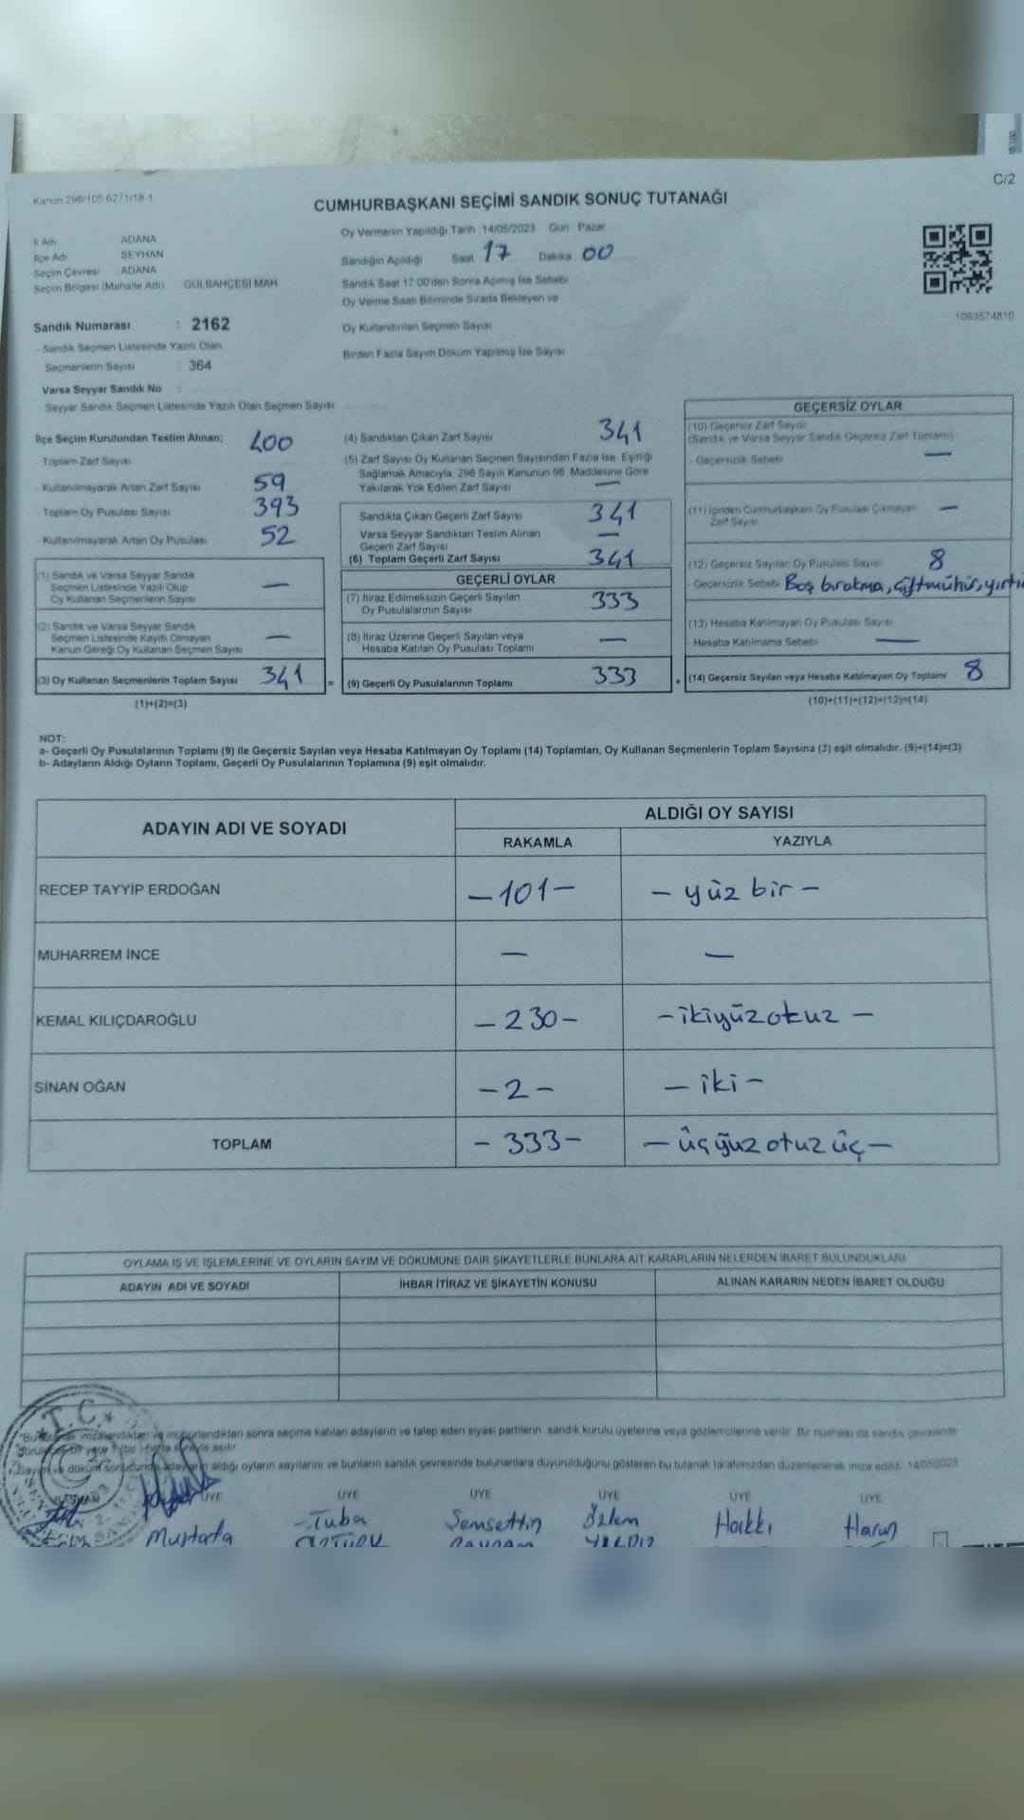 C/2
Kanun 298/105 6271/18-1
CUMHURBAŞKANI SEÇİMİ SANDIK SONUÇ TUTANAĞI
İl Adı ADANA
İlçe Adı SEYHAN
Seçim Çevresi ADANA
Seçim Bölgesi (Mahalle Adı) GÜLBAHÇESİ MAH.
Sandık Numarası : 2162
Sandık Seçmen Listesinde Yazılı Olan
Seçmenlerin Sayısı : 364
Varsa Seyyar Sandık No
Seyyar Sandık Seçmen Listesinde Yazılı Olan Seçmen Sayısı
Oy Vermenin Yapıldığı Tarih 14/05/2023 Gün Pazar
Sandığın Açıldığı Saat 17 Dakika 00
Sandık Saat 17:00'den Sonra Açılmış İse Sebebi
Oy Verme Saati Bitiminde Sırada Bekleyen ve
Oy Kullandırılan Seçmen Sayısı
Birden Fazla Sayım Döküm Yapılmış İse Sayısı
1093574810
İlçe Seçim Kurulundan Teslim Alınan; 400
Toplam Zarf Sayısı
Kullanılmayarak Artan Zarf Sayısı 59
Toplam Oy Pusulası Sayısı 393
Kullanılmayarak Artan Oy Pusulası 52
(1) Sandık ve Varsa Seyyar Sandık
Seçmen Listesinde Yazılı Olup
Oy Kullanan Seçmenlerin Sayısı —
(2) Sandık ve Varsa Seyyar Sandık
Seçmen Listesinde Kayıtlı Olmayan
Kanun Gereği Oy Kullanan Seçmen Sayısı —
(3) Oy Kullanan Seçmenlerin Toplam Sayısı 341 =
(1)+(2)=(3)
(4) Sandıktan Çıkan Zarf Sayısı 341
(5) Zarf Sayısı Oy Kullanan Seçmen Sayısından Fazla İse, Eşitliği
Sağlamak Amacıyla, 298 Sayılı Kanunun 98. Maddesine Göre
Yakılarak Yok Edilen Zarf Sayısı —
Sandıkta Çıkan Geçerli Zarf Sayısı 341
Varsa Seyyar Sandıktan Teslim Alınan
Geçerli Zarf Sayısı —
(6) Toplam Geçerli Zarf Sayısı 341
GEÇERLİ OYLAR
(7) İtiraz Edilmeksizin Geçerli Sayılan
Oy Pusulalarının Sayısı 333
(8) İtiraz Üzerine Geçerli Sayılan veya
Hesaba Katılan Oy Pusulası Toplamı —
(9) Geçerli Oy Pusulalarının Toplamı 333 +
GEÇERSİZ OYLAR
(10) Geçersiz Zarf Sayısı
(Sandık ve Varsa Seyyar Sandık Geçersiz Zarf Toplamı)
- Geçersizlik Sebebi —
(11) İçinden Cumhurbaşkanı Oy Pusulası Çıkmayan
Zarf Sayısı —
(12) Geçersiz Sayılan Oy Pusulası Sayısı 8
- Geçersizlik Sebebi Boş bırakma, çiftmühür, yırtı
(13) Hesaba Katılmayan Oy Pusulası Sayısı
Hesaba Katılmama Sebebi —
(14) Geçersiz Sayılan veya Hesaba Katılmayan Oy Toplamı 8
(10)+(11)+(12)+(13)=(14)
NOT:
a- Geçerli Oy Pusulalarının Toplamı (9) ile Geçersiz Sayılan veya Hesaba Katılmayan Oy Toplamı (14) Toplamları, Oy Kullanan Seçmenlerin Toplam Sayısına (3) eşit olmalıdır. (9)+(14)=(3)
b- Adayların Aldığı Oyların Toplamı, Geçerli Oy Pusulalarının Toplamına (9) eşit olmalıdır.
ADAYIN ADI VE SOYADI ALDIĞI OY SAYISI
RAKAMLA YAZIYLA
RECEP TAYYİP ERDOĞAN —101— — yüz bir —
MUHARREM İNCE — —
KEMAL KILIÇDAROĞLU — 230 — — ikiyüzotuz —
SİNAN OĞAN — 2 — — iki —
TOPLAM — 333 — — üçyüz otuz üç —
OYLAMA İŞ VE İŞLEMLERİNE VE OYLARIN SAYIM VE DÖKÜMÜNE DAİR ŞİKAYETLERLE BUNLARA AİT KARARLARIN NELERDEN İBARET BULUNDUKLARI
ADAYIN ADI VE SOYADI İHBAR İTİRAZ VE ŞİKAYETİN KONUSU ALINAN KARARIN NEDEN İBARET OLDUĞU
T.C.
imzalandıktan ve mühürlendikten sonra seçime katılan adayların ve talep eden siyasi partilerin sandık kurulu üyelerine veya gözlemcilerine verilir. Bir nüshası da sandık çevresinde
aldığı oyların sayılarını ve bunların sandık çevresinde bulunanlara duyurulduğunu gösteren bu tutanak tarafımızdan düzenlenerek imza edildi. 14/05/2023
ÜYE ÜYE ÜYE ÜYE ÜYE ÜYE
Mustafa Tuba Şemsettin Özlem Hakkı Harun
YILDIZ